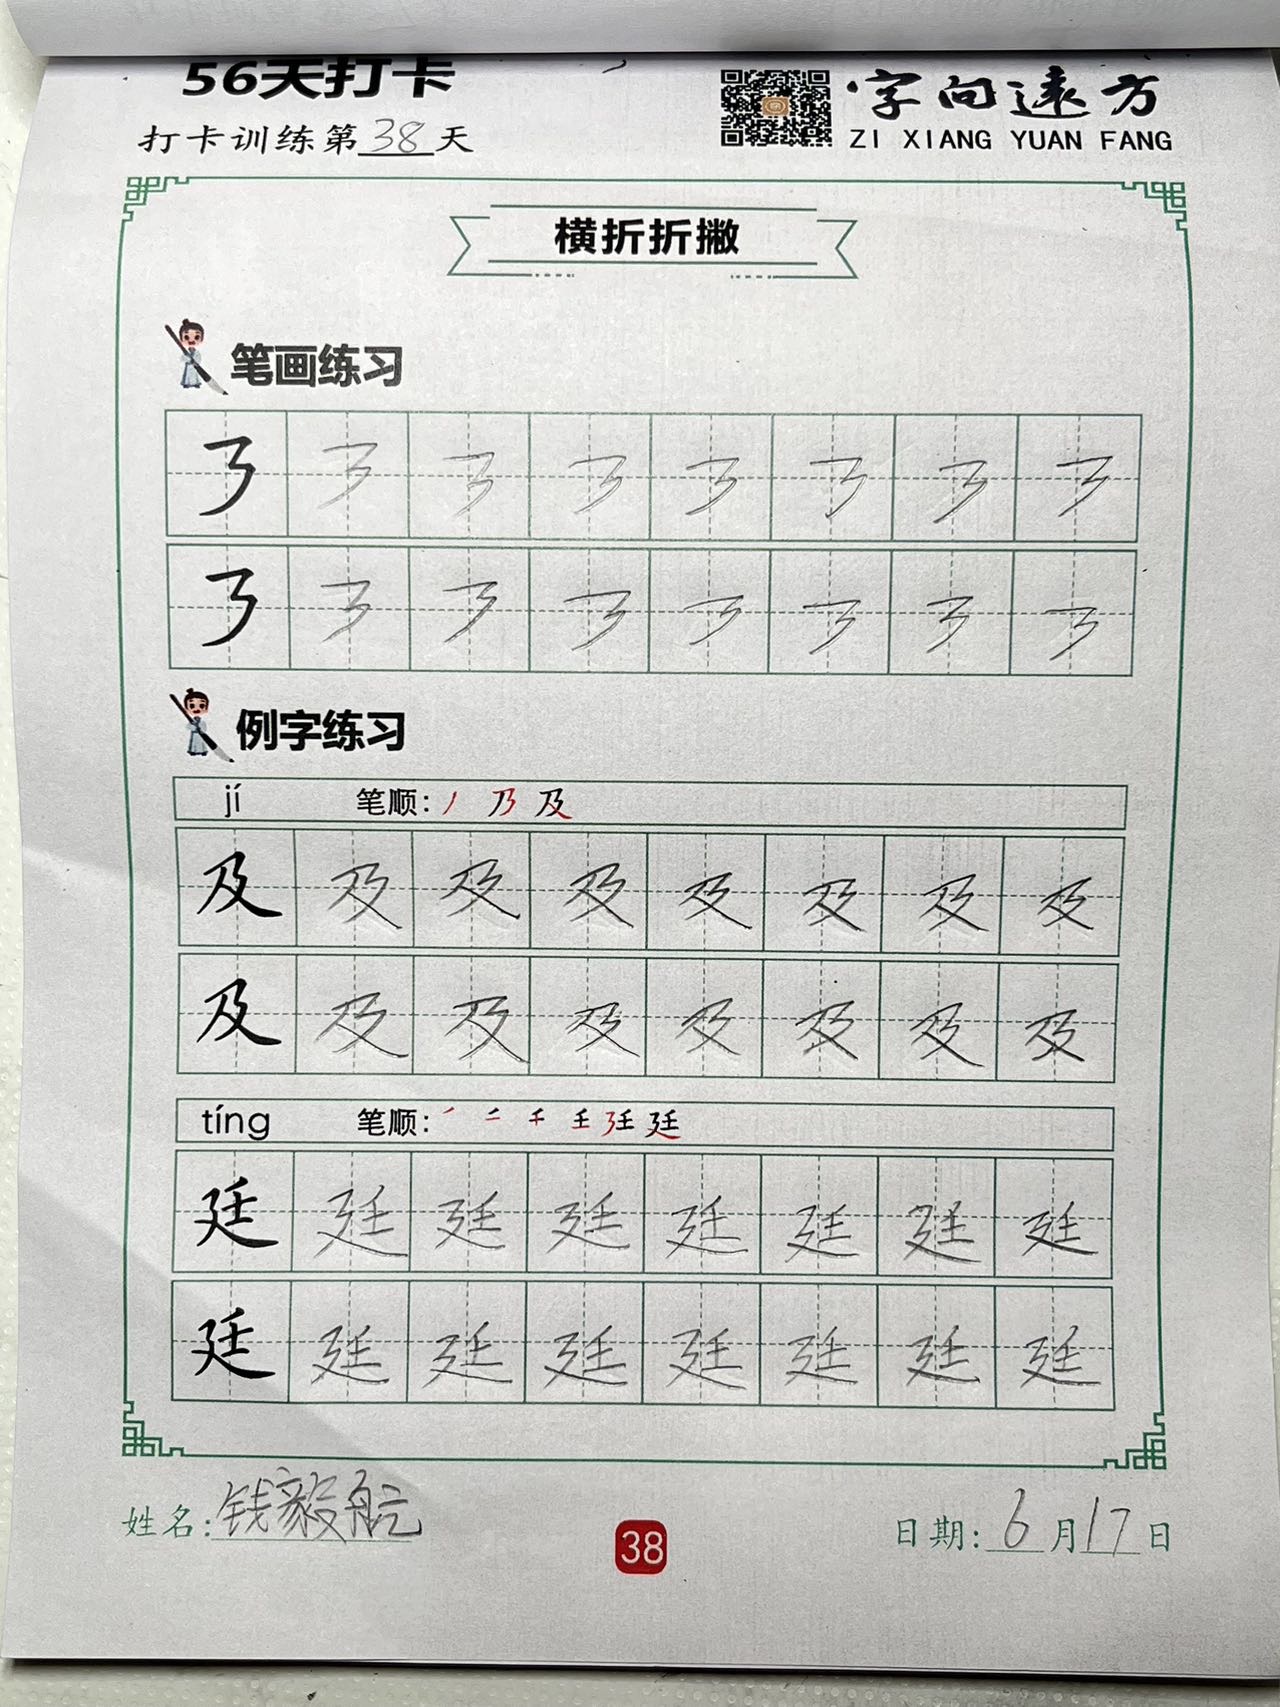 56天打卡
字向远方
打卡训练第38天
ZI XIANG YUAN FANG
横折折撇
笔画练习
例字练习
jí 笔顺: 丿 乃 及
及 及 及 及 及 及 及 及
及 及 及 及 及 及 及 及
tíng 笔顺: 廷
廷 廷 廷 廷 廷 廷 廷 廷
廷 廷 廷 廷 廷 廷 廷 廷
姓名: 钱毅航
38
日期: 6月17日